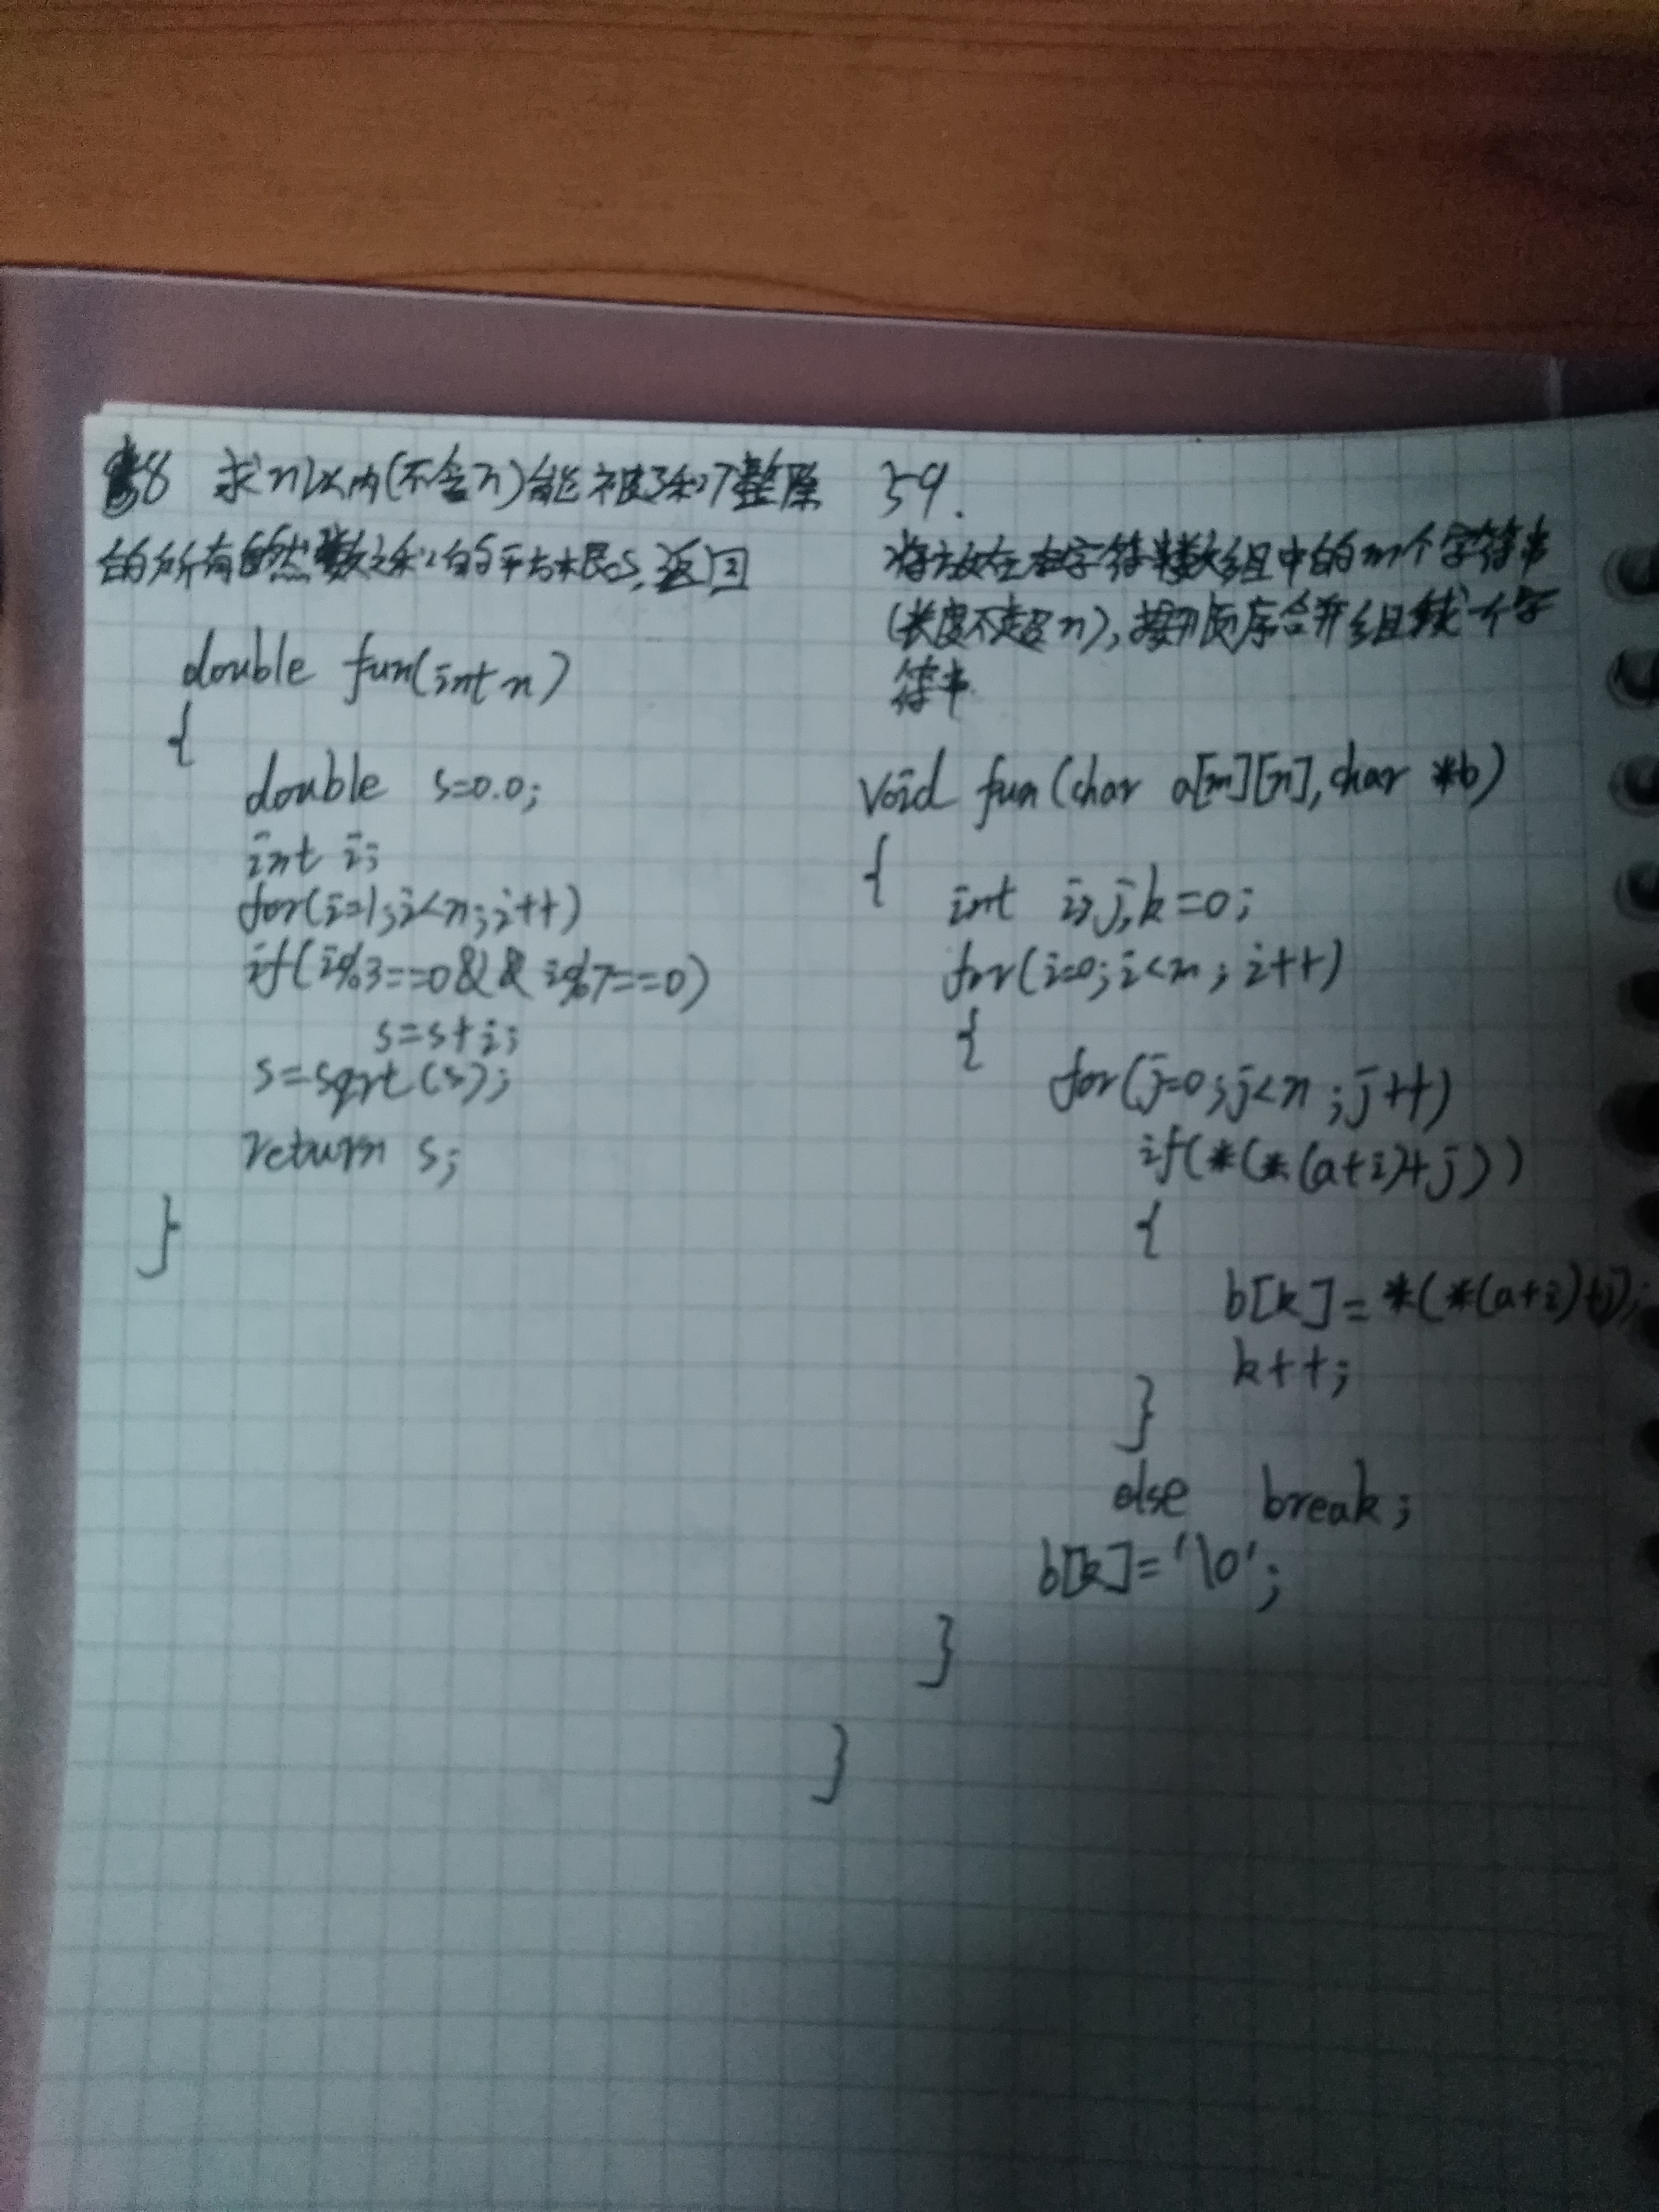 58 求n以内(不含n)能被3和7整除
的所有自然数之和的平方根s,返回
double fun(int n)
{
double s=0.0;
int i;
for(i=1;i<n;i++)
if(i%3==0&&i%7==0)
s=s+i;
s=sqrt(s);
return s;
}
59.
将放在字符串数组中的m个字符串
(长度不超n),按顺序合并组成一个字
符串
void fun(char a[m][n],char *b)
{
int i,j,k=0;
for(i=0;i<m;i++)
{
for(j=0;j<n;j++)
if(*(*(a+i)+j))
{
b[k]=*(*(a+i)+j);
k++;
}
else break;
b[k]='\0';
}
}